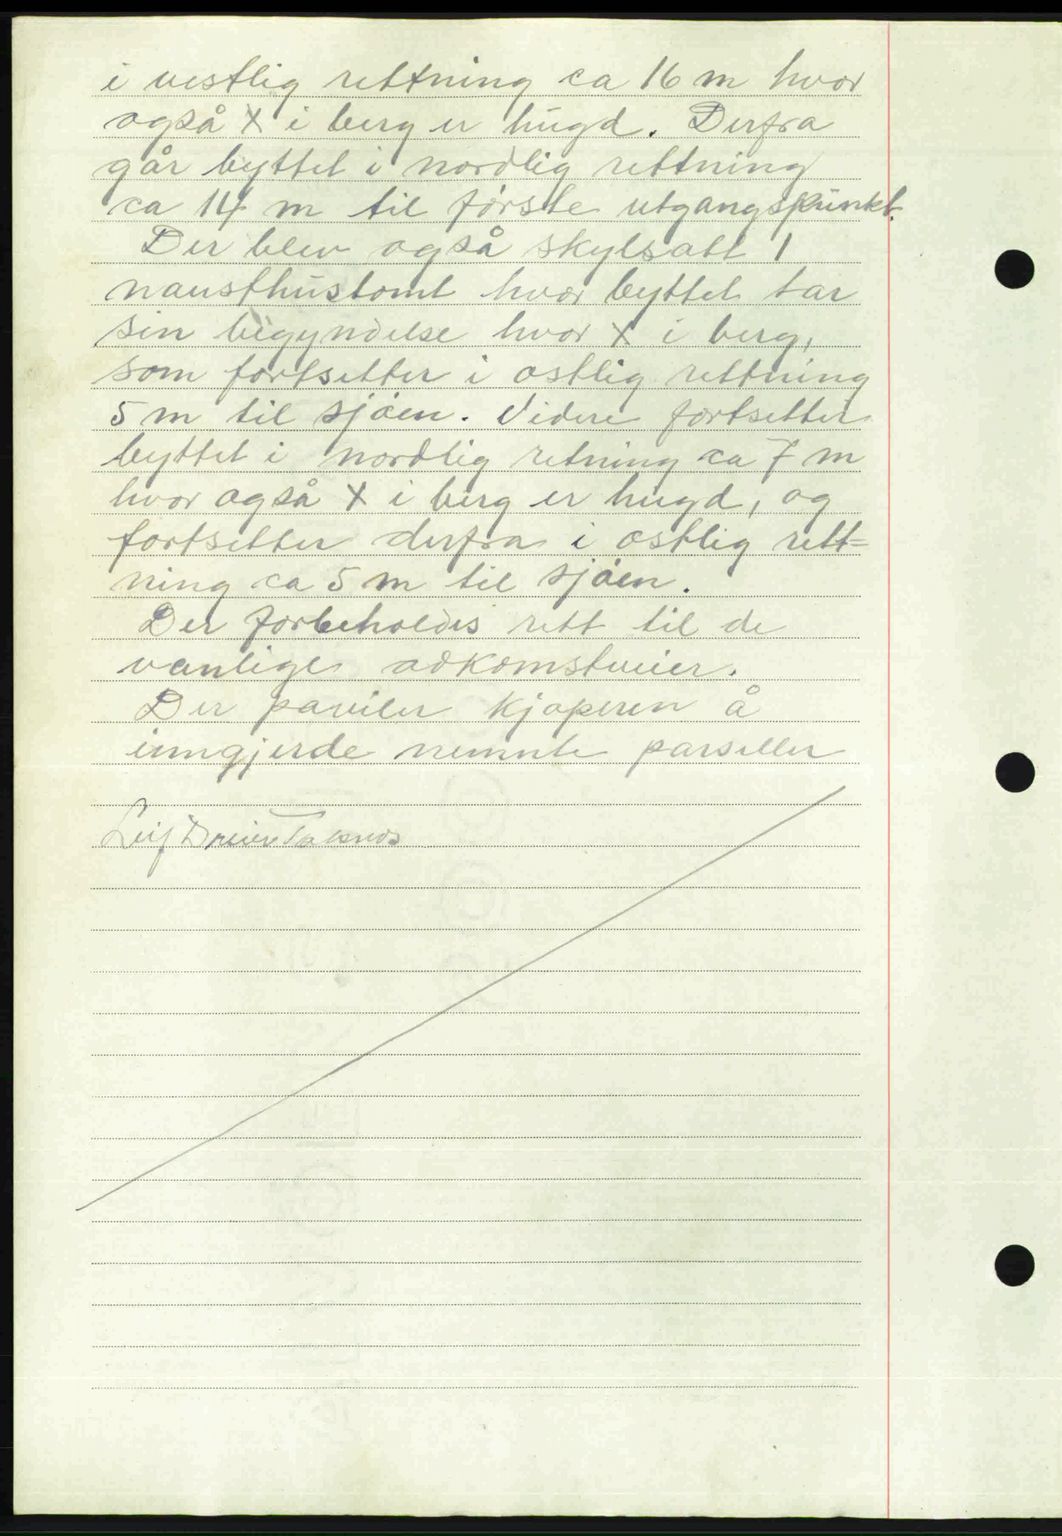 i vestlig rettning ca 16 m hvor
også X i berg er hugd. Derfra
går byttet i nordlig rettning
ca 14 m til første utgangspunkt.
Der blev også skylsatt 1
nausthustomt hvor byttet tar
sin begyndelse hvor X i berg,
som fortsetter i østlig rettning
5 m til sjøen. Videre fortsetter
byttet i nordlig retning ca 7 m
hvor også X i berg er hugd, og
fortsetter derfra i østlig rett=
ning ca 5 m til sjøen.
Der forbeholdes rett til de
vanlige adkomstveier.
Der paviler kjøperen å
inngjerde nemnte parseller
Leif Dreier